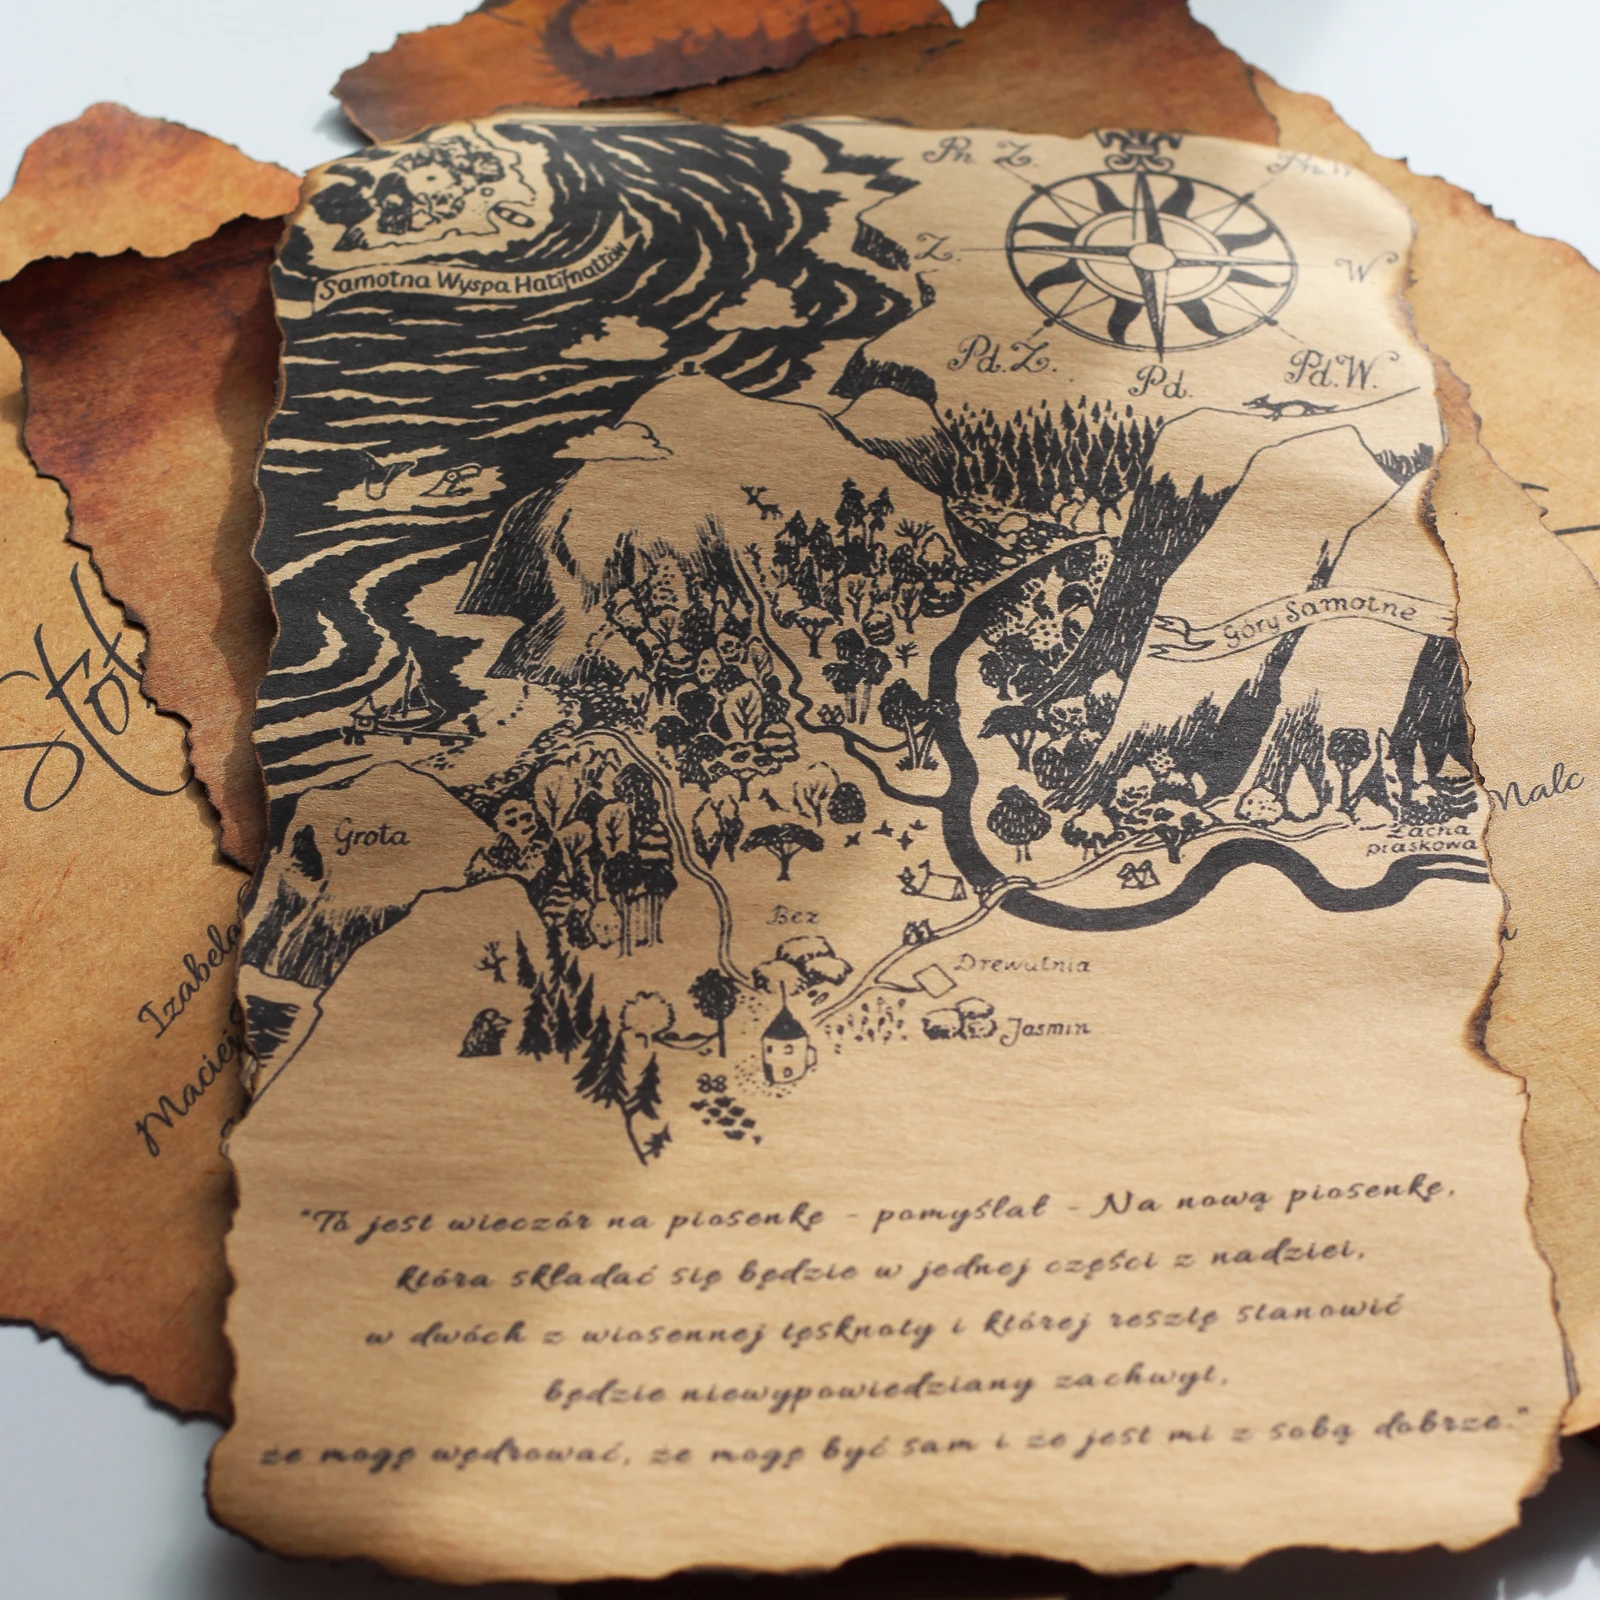 Pn. Z.
Z.
W.
Pd. Z.
Pd.
Pd. W.
Samotna Wyspa Hatifnattów
Góry Samotne
Grota
Łacha
piaskowa
Bez
Drewutnia
Jaśmin
Stół
Izabela
Maciej
Malc
"To jest wieczór na piosenkę - pomyślał - Na nową piosenkę,
która składać się będzie w jednej części z nadziei,
w dwóch z wiosennej tęsknoty i której resztę stanowić
będzie niewypowiedziany zachwyt,
że mogę wędrować, że mogę być sam i że jest mi z sobą dobrze."